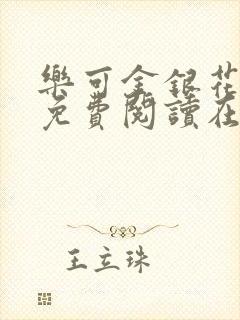 樂可金銀花
免費閱讀在
王立珠